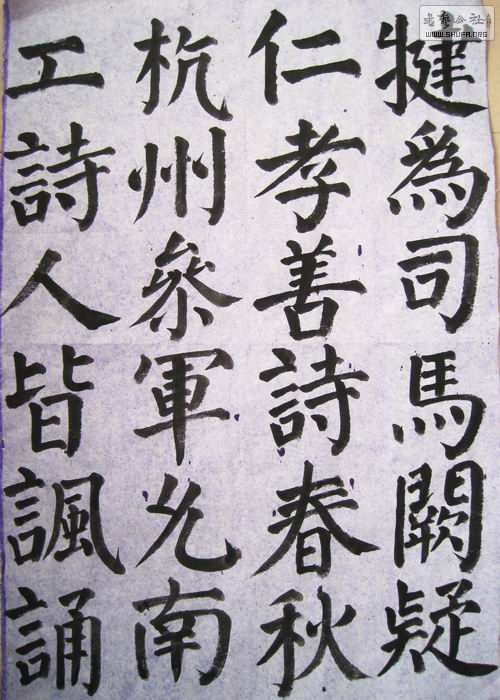 犍爲司馬闕疑
仁孝善詩春秋
杭州叅軍允南
工詩人皆諷誦
書藝公社
WWW.SHUFA.ORG